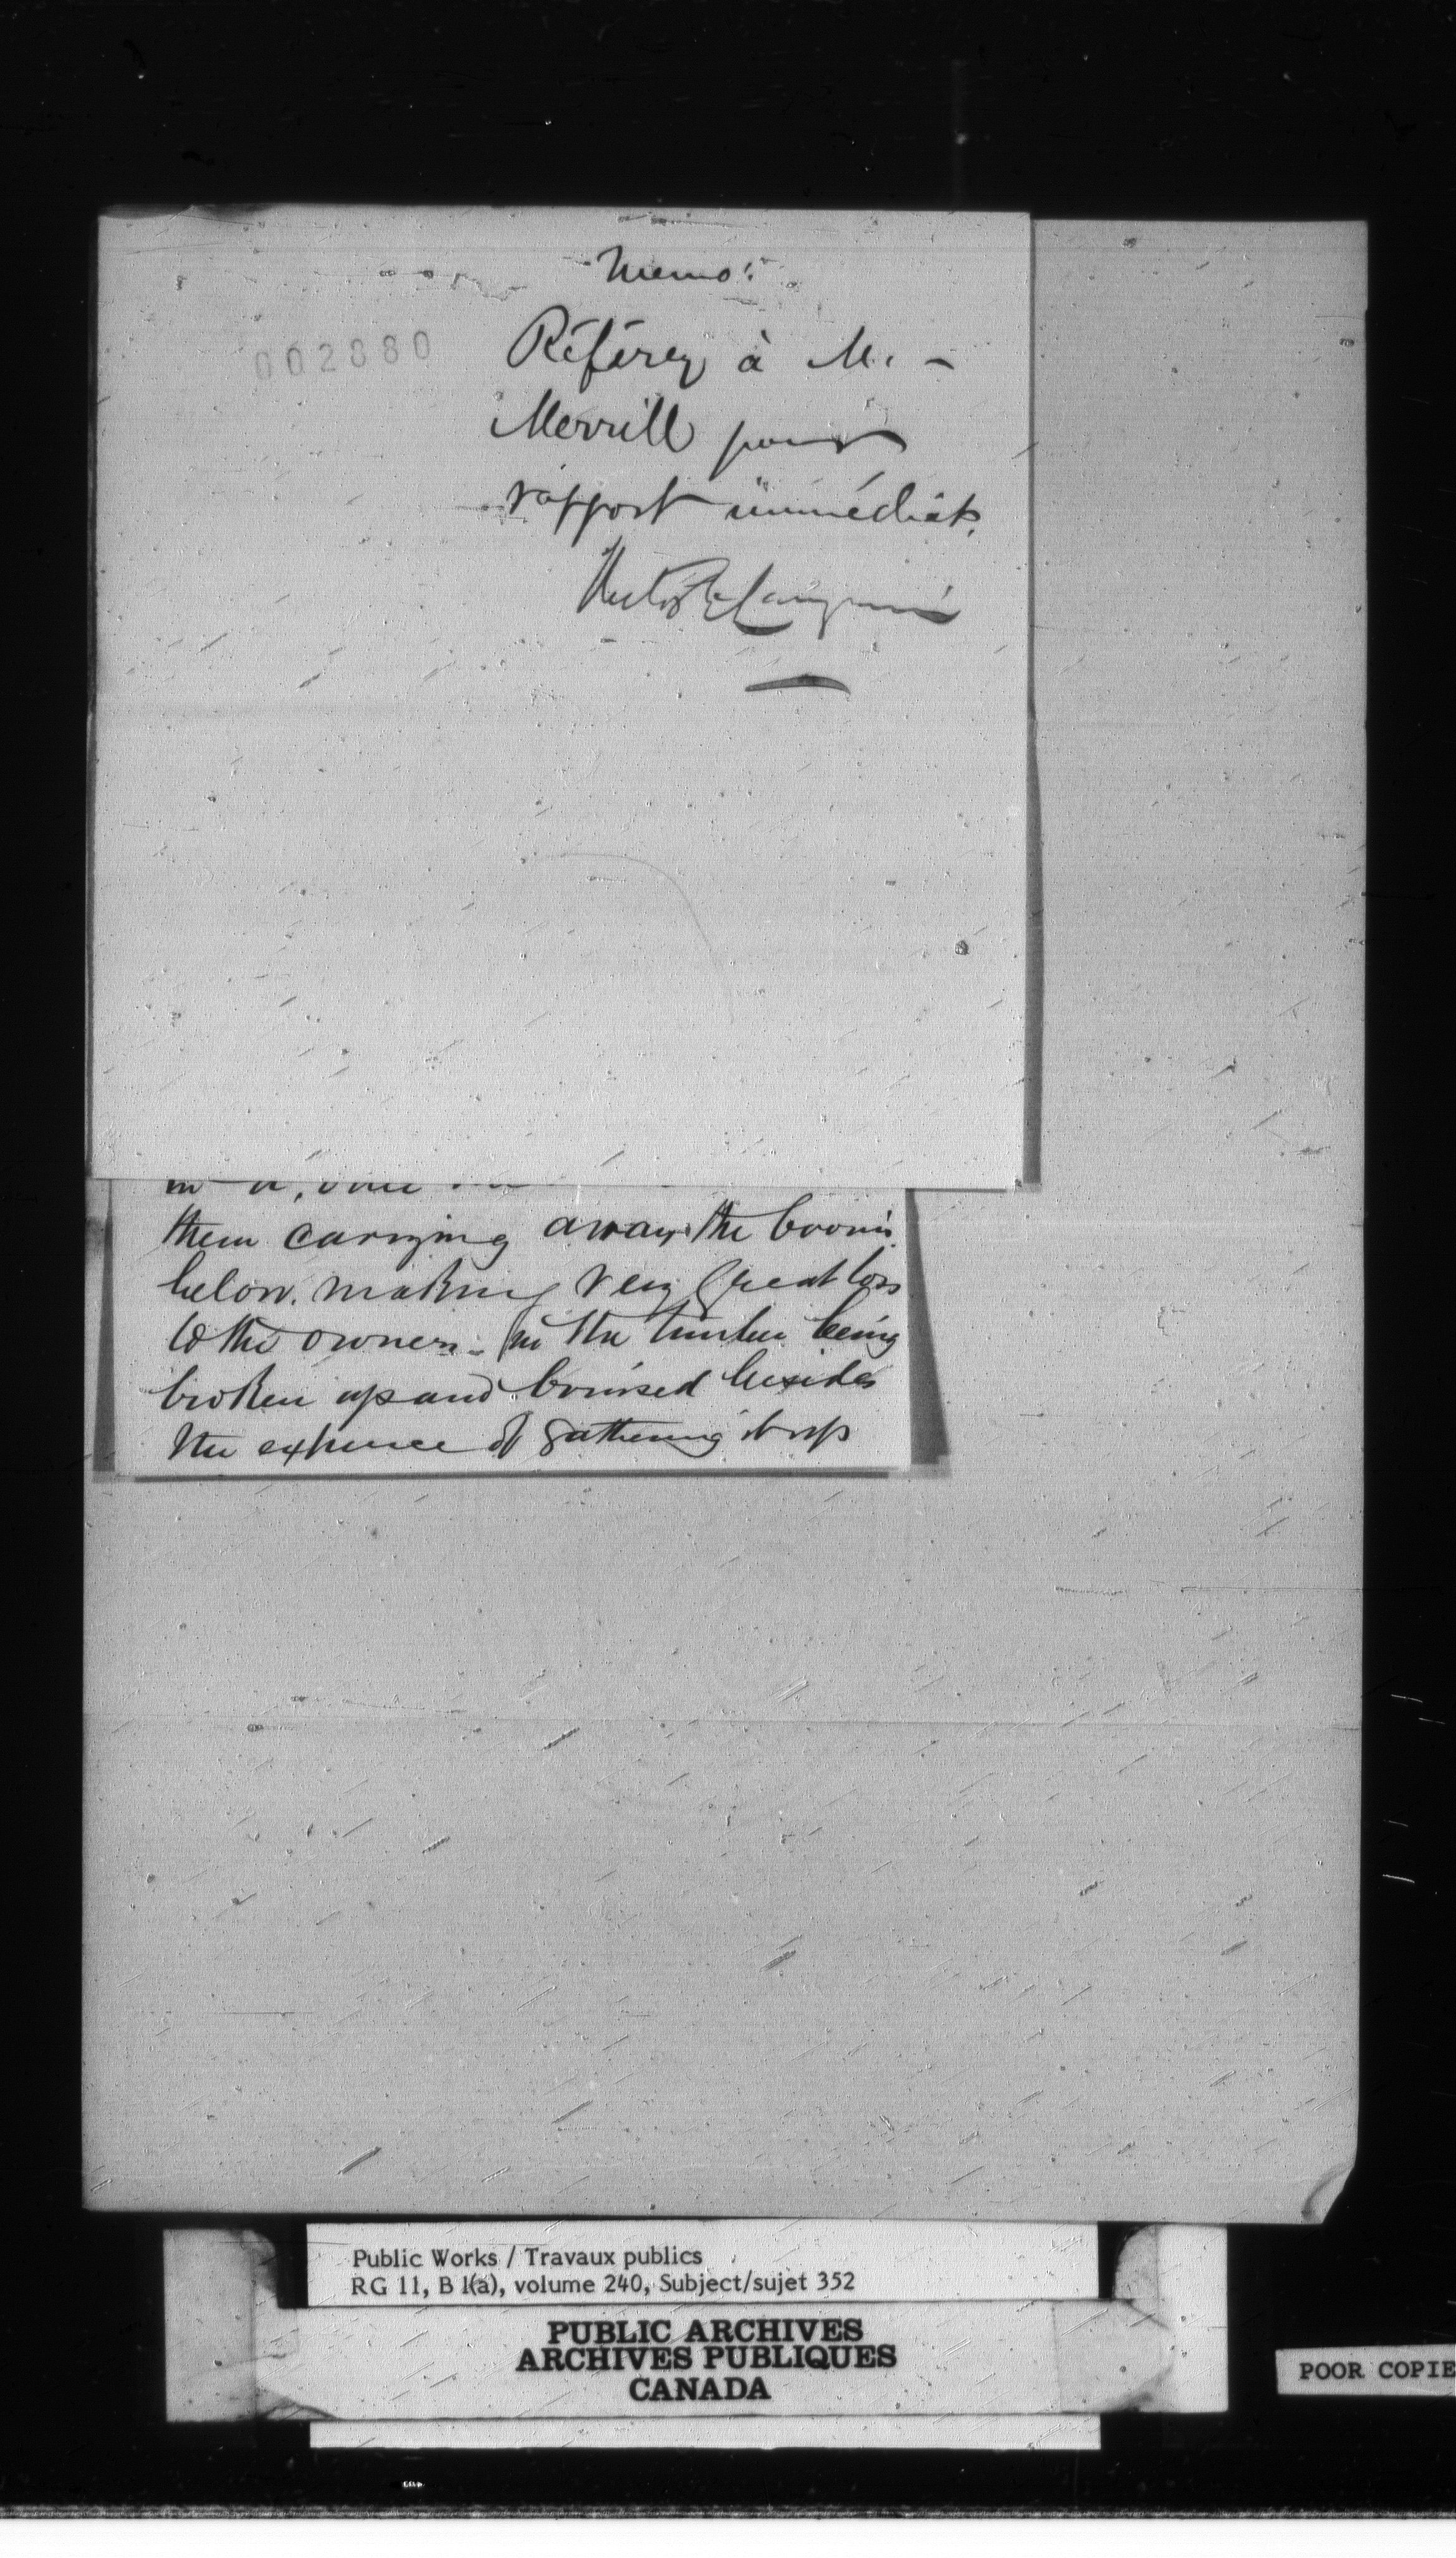 Memo:
002880
Référez à M. -
Merrill pour
rapport immédiat.
Hector L. Langevin
them carrying away the booms
below. making very great loss
to the owners - in the timber being
broken up and bruised besides
the expence of gathering it up
Public Works / Travaux publics
RG 11, B 1(a), volume 240, Subject/sujet 352
PUBLIC ARCHIVES
ARCHIVES PUBLIQUES
CANADA
POOR COPIE